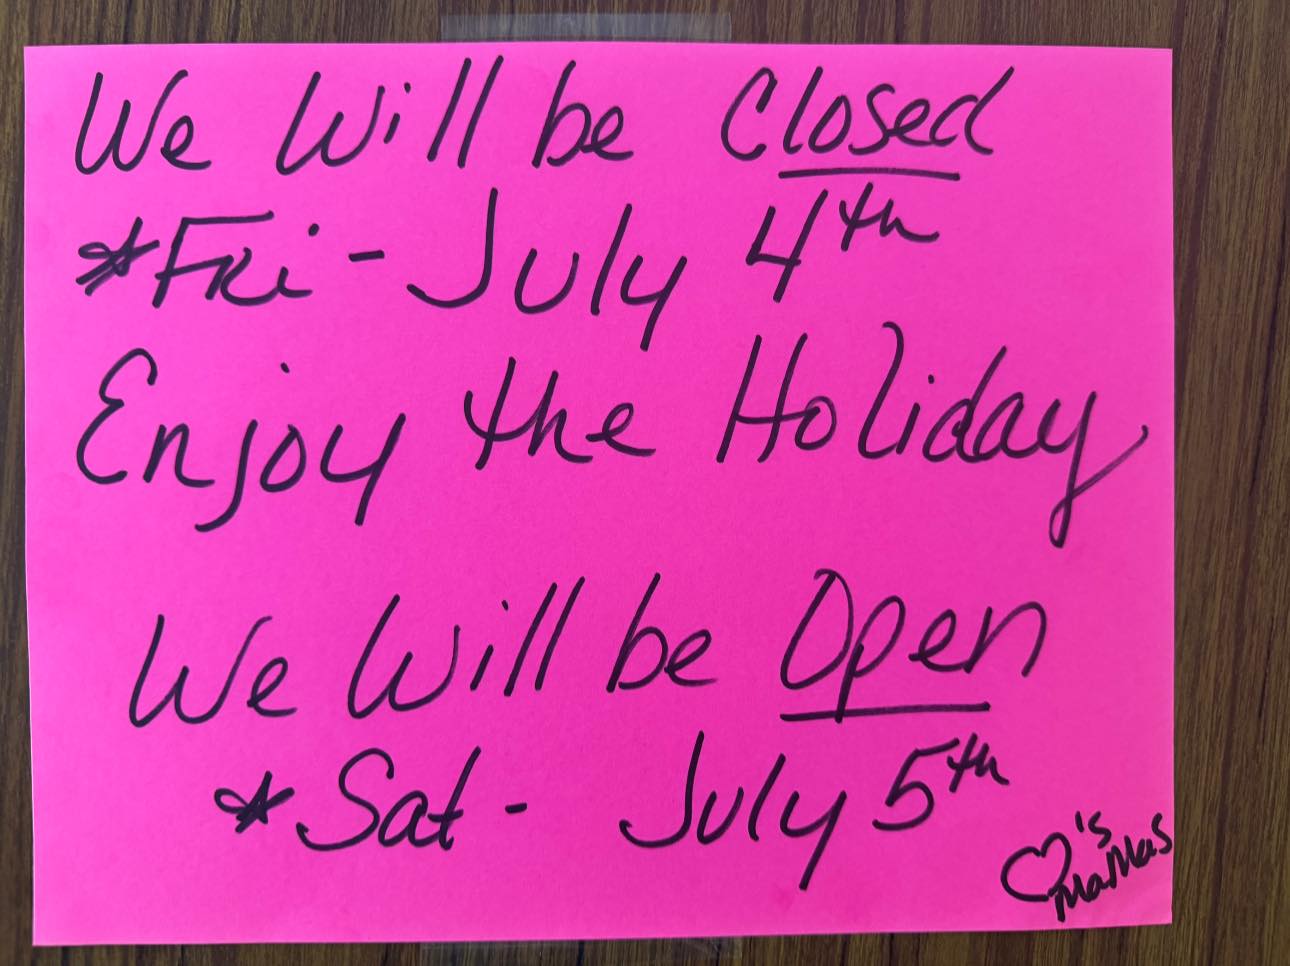 We Will be Closed
*Fri - July 4th
Enjoy the Holiday
We Will be Open
*Sat - July 5th
♡'s
MaMas